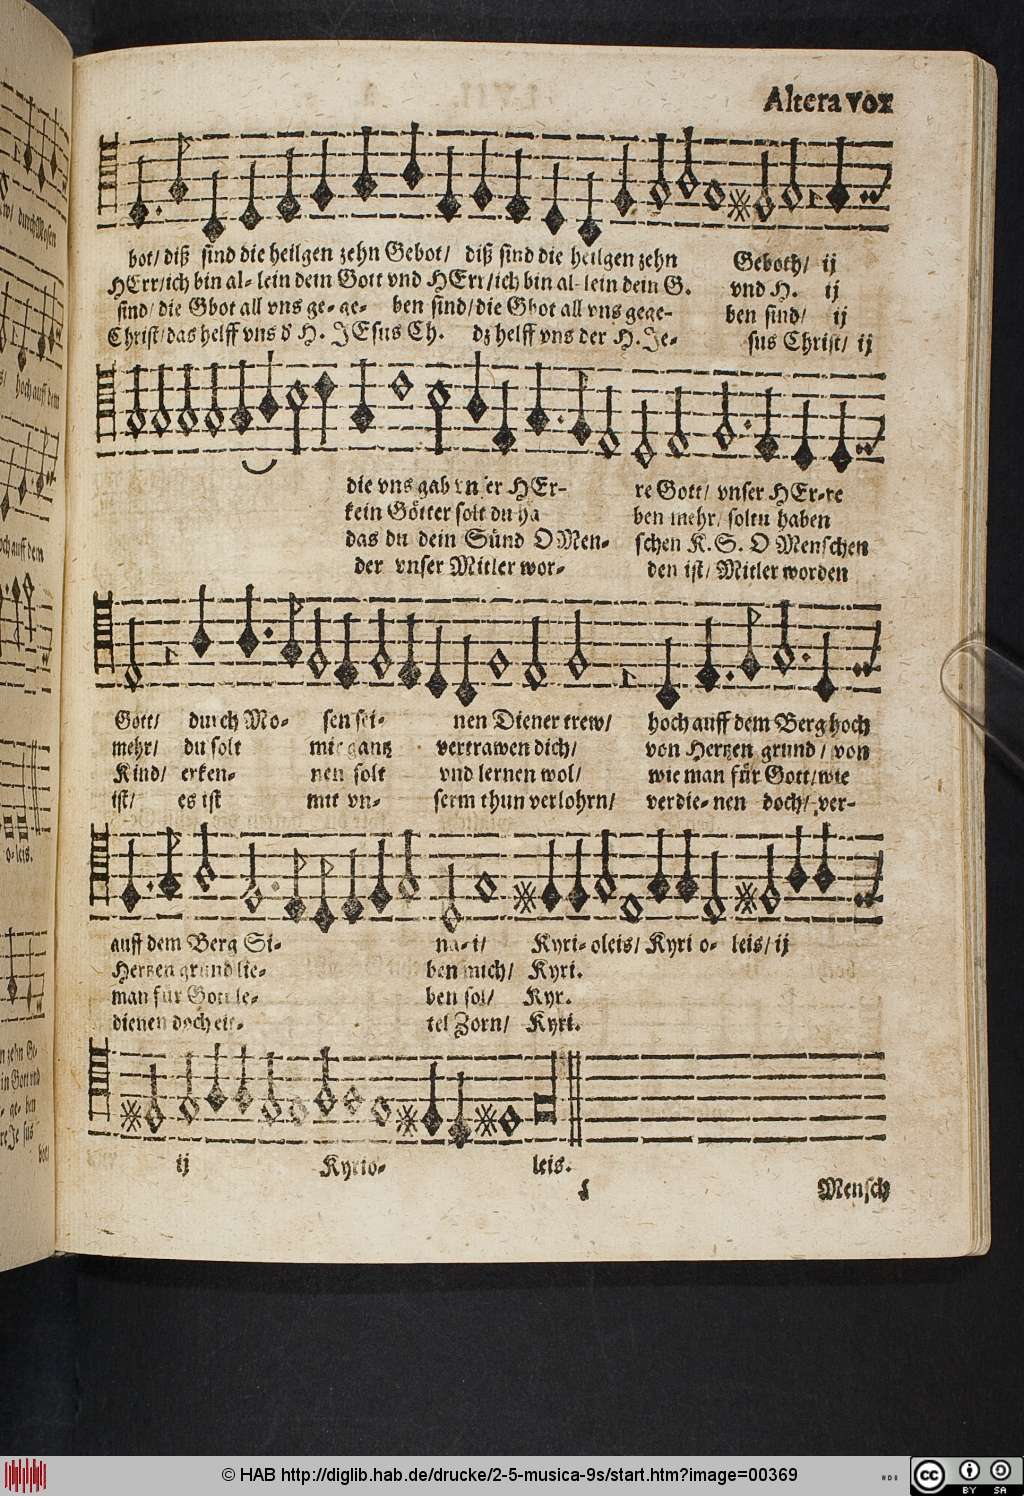 Altera vox
bot/ diß sind die heilgen zehn Gebot/ diß sind die heilgen zehn Geboth/ ij
HErr/ich bin al- lein dein Gott vnd HErr/ich bin al- lein dein G. vnd H. ij
sind/ die Gbot all vns ge- ge- ben sind/die Gbot all vns gege- ben sind/ ij
Christ/das helff vns d' H. JEsus Ch. dz helff vns der H. Je- sus Christ/ ij
die vns gab vnser HEr- re Gott/ vnser HEr-re
kein Götter solt du ha ben mehr/ soltu haben
das du dein Sünd O Men- schen K. S. O Menschen
der vnser Mitler wor- den ist/ Mitler worden
Gott/ durch Mo- sen sei- nen Diener trew/ hoch auff dem Berg hoch
mehr/ du solt mir gantz vertrawen dich/ von Hertzen grund/ von
Kind/ erken- nen solt vnd lernen wol/ wie man für Gott/wie
ist/ es ist mit vn- serm thun verlohrn/ verdie- nen doch/ ver-
auff dem Berg Si- na- i/ Kyri- oleis/ Kyri o- leis/ ij
Hertzen grund lie- ben mich/ Kyri.
man für Gott le- ben sol/ Kyr.
dienen doch eit- tel Zorn/ Kyri.
ij Kyrio- leis.
Mensch
© HAB http://diglib.hab.de/drucke/2-5-musica-9s/start.htm?image=00369
HAB
cc BY SA